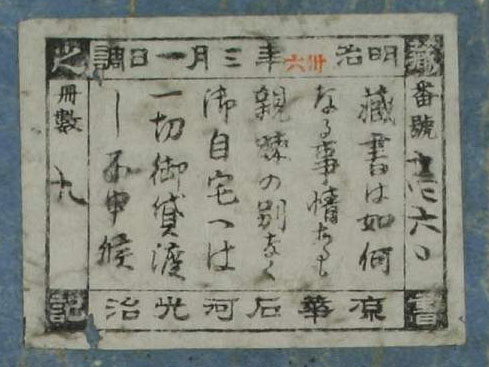 明治卅六年三月一日調
藏書之記
番號
藏書は如何
なる事情あるも
親疎の別なく
御自宅へは
一切御貸渡
し不申候
冊數 九
華石河光治